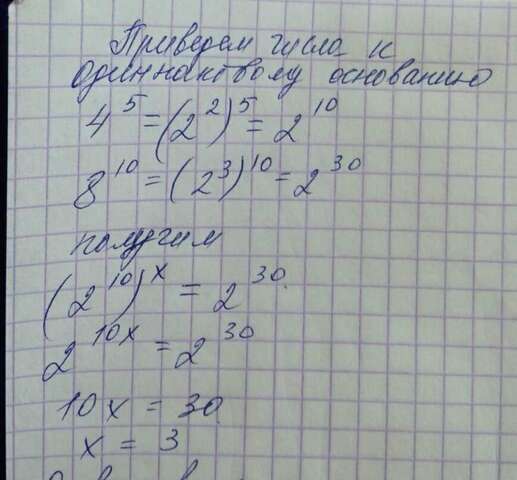 Приведем числа к
одиннактвому основанию
4^5 = (2^2)^5 = 2^10
8^10 = (2^3)^10 = 2^30
получим
(2^10)^x = 2^30
2^10x = 2^30
10x = 30
x = 3